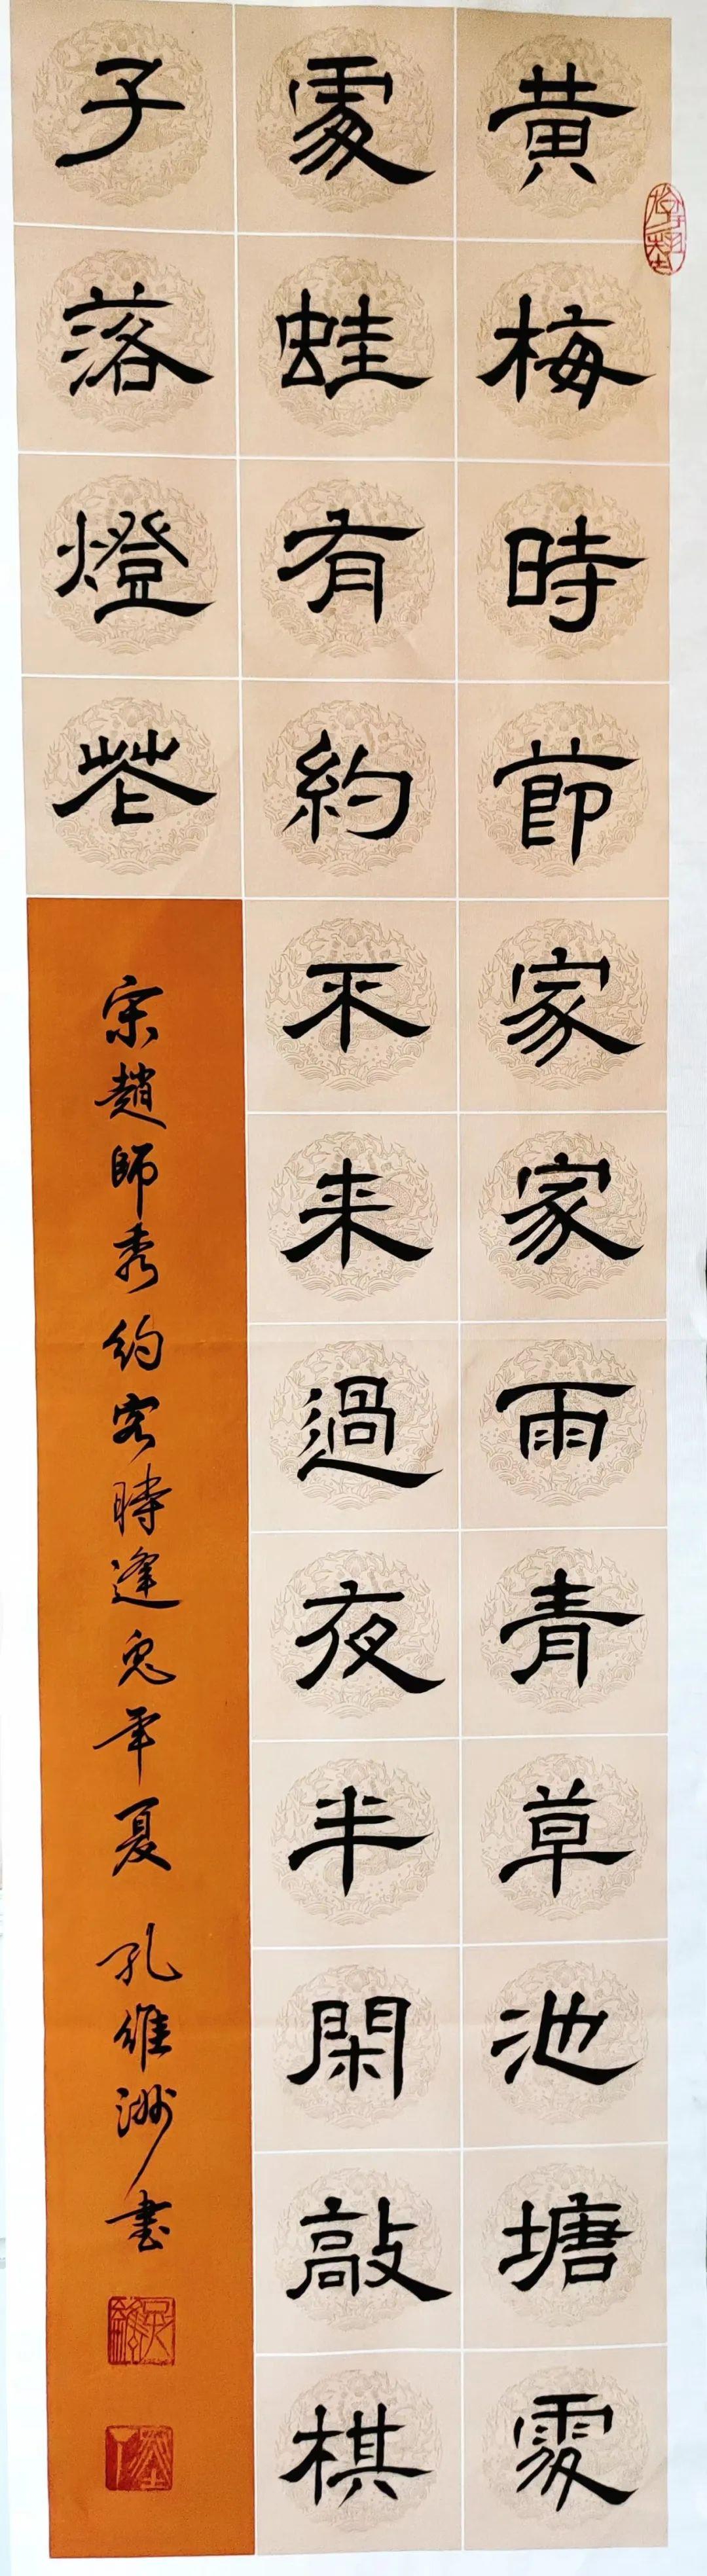 黄梅時節家家雨青草池塘處
處蛙有約不来過夜半閑敲棋
子落燈花
宋趙師秀約客時逢兔年夏 孔維洲書